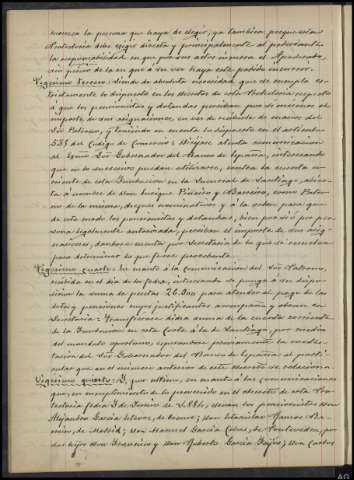 merezca la persona que haya de elegir, ya tambien porque esta
Autoridad debe exigir directa y principalmente al protectorado
la responsabilidad en que por sus actos incurra el Apoderado,
sin perjuicio de la en que á su vez haya este podido incurrir.
Vigésimo tercero: Siendo de absoluta necesidad que se cumpla es-
trictamente lo dispuesto en los decretos de esta Protectoria respecto
á que los pensionistas y dotandas perciban por si mismos el
importe de sus asignaciones, en vez de recibirlo de manos del
Sor Patrono, y teniendo en cuenta lo dispuesto en el articulo
534 del Codigo de Comercio: Dirijase atenta comunicacion
al Exmo Sor Gobernador del Banco de España, interesando
que en lo sucesivo puedan utilizarse, contra la cuenta co-
rriente de esta Fundacion en la Sucursal de Santiago, abier-
ta á nombre de don Enrique Piñeiro y Barreiro, como Patro-
no de la misma, cheques nominativos y á la orden para que
de este modo los pensionistas y dotandas, bien por sí ó por per-
sona legalmente autorizada, perciban el importe de sus asig-
naciones, dandose cuenta por Secretaría de lo que se conteste
para determinar lo que fuese procedente.
Vigésimo cuarto: En cuanto á la comunicacion del Sor Patrono,
recibida en el dia de la fecha, interesando se ponga á su dispo-
sicion la suma de pesetas 26. para atender al pago de las
dotes y pensiones cuyos justificantes acompaña y obran en
Secretaria: Transfierase dicha suma de la cuenta corriente
de la Fundacion en esta Corte á la de Santiago, por medio
del mandato oportuno, esperandose previamente la contes-
tacion del Sor Gobernador del Banco de España al parti-
cular que en el número anterior de este decreto se relaciona.
Vigésimo quinto: Y, por ultimo, en cuanto á las comunicaciones
que, en cumplimiento de lo prevenido en el decreto de esta Pro-
tectoria fecha 3 de Junio de 1886, elevan los pensionistas don
Alejandro Garcia Esteves, de Orense; don Estanislao Ramos Ba-
de Madrid; don Manuel Garcia Cobas, de Pontevedra, por
sus hijos don Francisco y don Roberto Garcia Feijóo; don Carlos